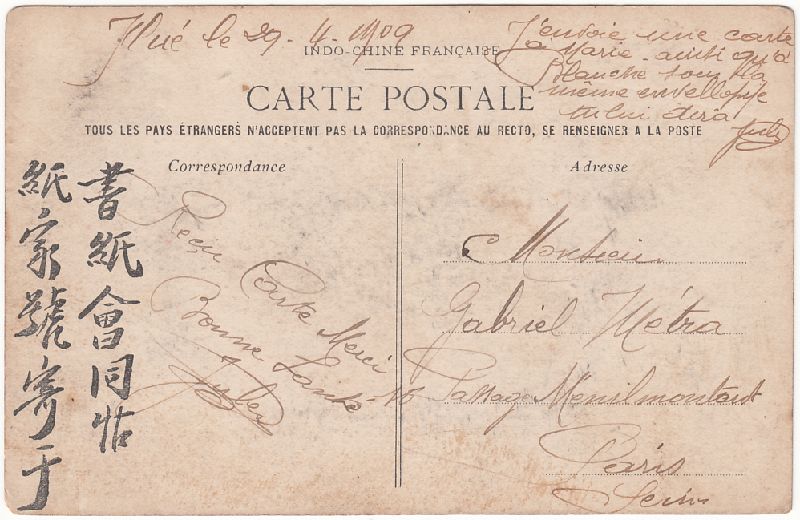 Hué le 29-4-1909
INDO-CHINE FRANÇAISE
J'envoie une carte
a Marie ainsi qu'à
Blanche sous la
même envellope
tu lui dera
Jules
CARTE POSTALE
TOUS LES PAYS ÉTRANGERS N'ACCEPTENT PAS LA CORRESPONDANCE AU RECTO, SE RENSEIGNER A LA POSTE
Correspondance
書紙會同帖
紙家號寄于
Reçu Carte Merci
Bonne Santé
Jules
Adresse
Monsieur
Gabriel Métra
Passage Menilmontant
Paris
Seine